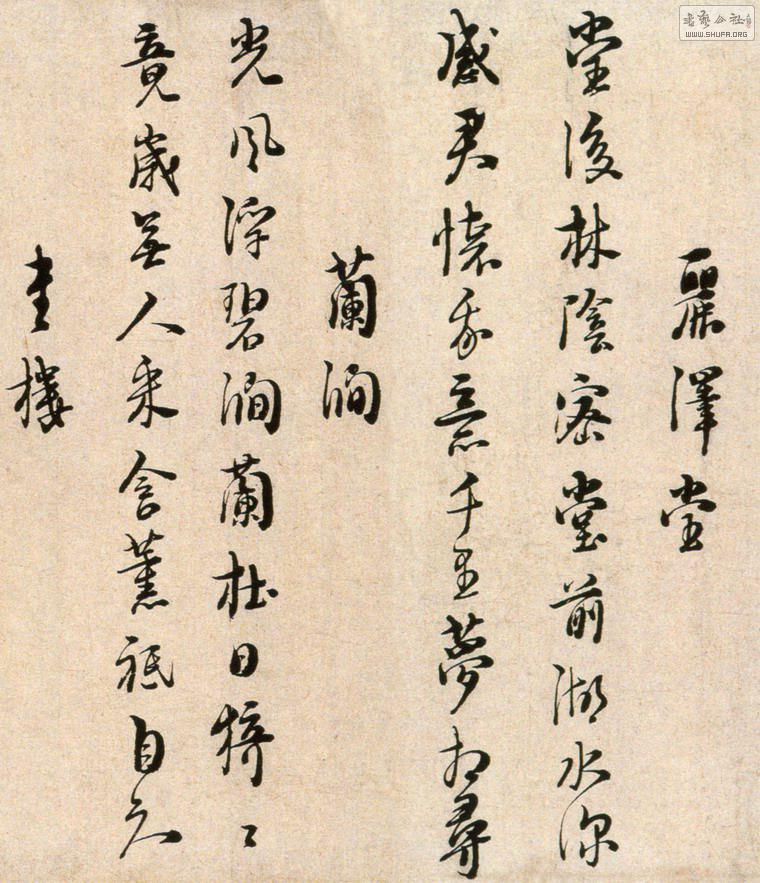 麗澤堂
堂後林陰密堂前湖水深
感君懷我意千里夢相尋
蘭澗
光風浮碧澗蘭杜日猗〻
竟歲無人采含薰祗自知
書樓
書藝公社
WWW.SHUFA.ORG